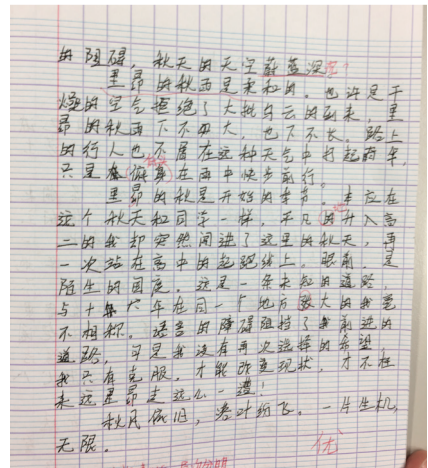 的阻碍，秋天的天空蔚蓝深
里昂的秋雨是柔和的。也许是干
燥的空气拒绝了大批乌云的到来，里
昂的秋雨下不大，也下不长。路上
的行人也不屑在这种天气中打起雨伞，
只是在雨中快步前行。
里昂的秋是开始的季节。本应在
这个秋天和同学一样，平凡的升入高
二的我却突然闯进了这里的秋天，再
一次站在高中的起跑线上。眼前，是
陌生的国度。这是一条未知的道路，
与十几年在同一地方长大的我毫
不相称。语言的障碍阻挡了我前进的
道路，可是我没有再次选择的希望，
我只有克服，才能改变现状，才不枉
来这里昂走这么一遭！
秋风依旧，落叶纷飞。一片生机，
无限。
优